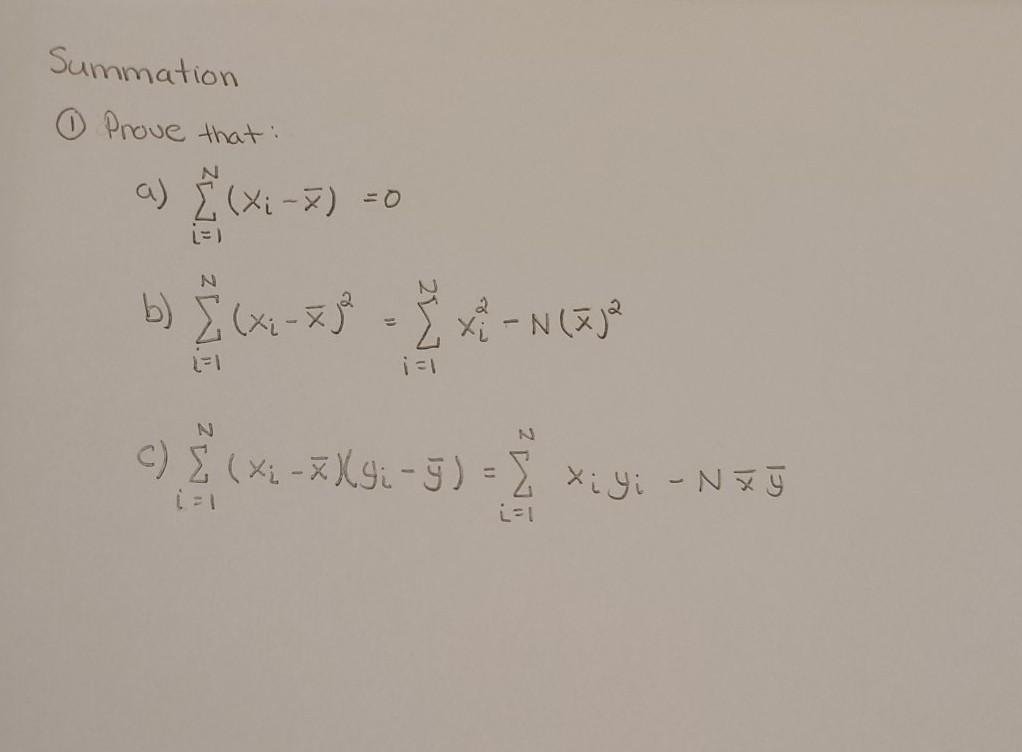 Summation
① Prove that:
a) $\sum_{i=1}^{N} (x_i - \bar{x}) = 0$
b) $\sum_{i=1}^{N} (x_i - \bar{x})^2 = \sum_{i=1}^{N} x_i^2 - N(\bar{x})^2$
c) $\sum_{i=1}^{N} (x_i - \bar{x})(y_i - \bar{y}) = \sum_{i=1}^{N} x_i y_i - N \bar{x} \bar{y}$